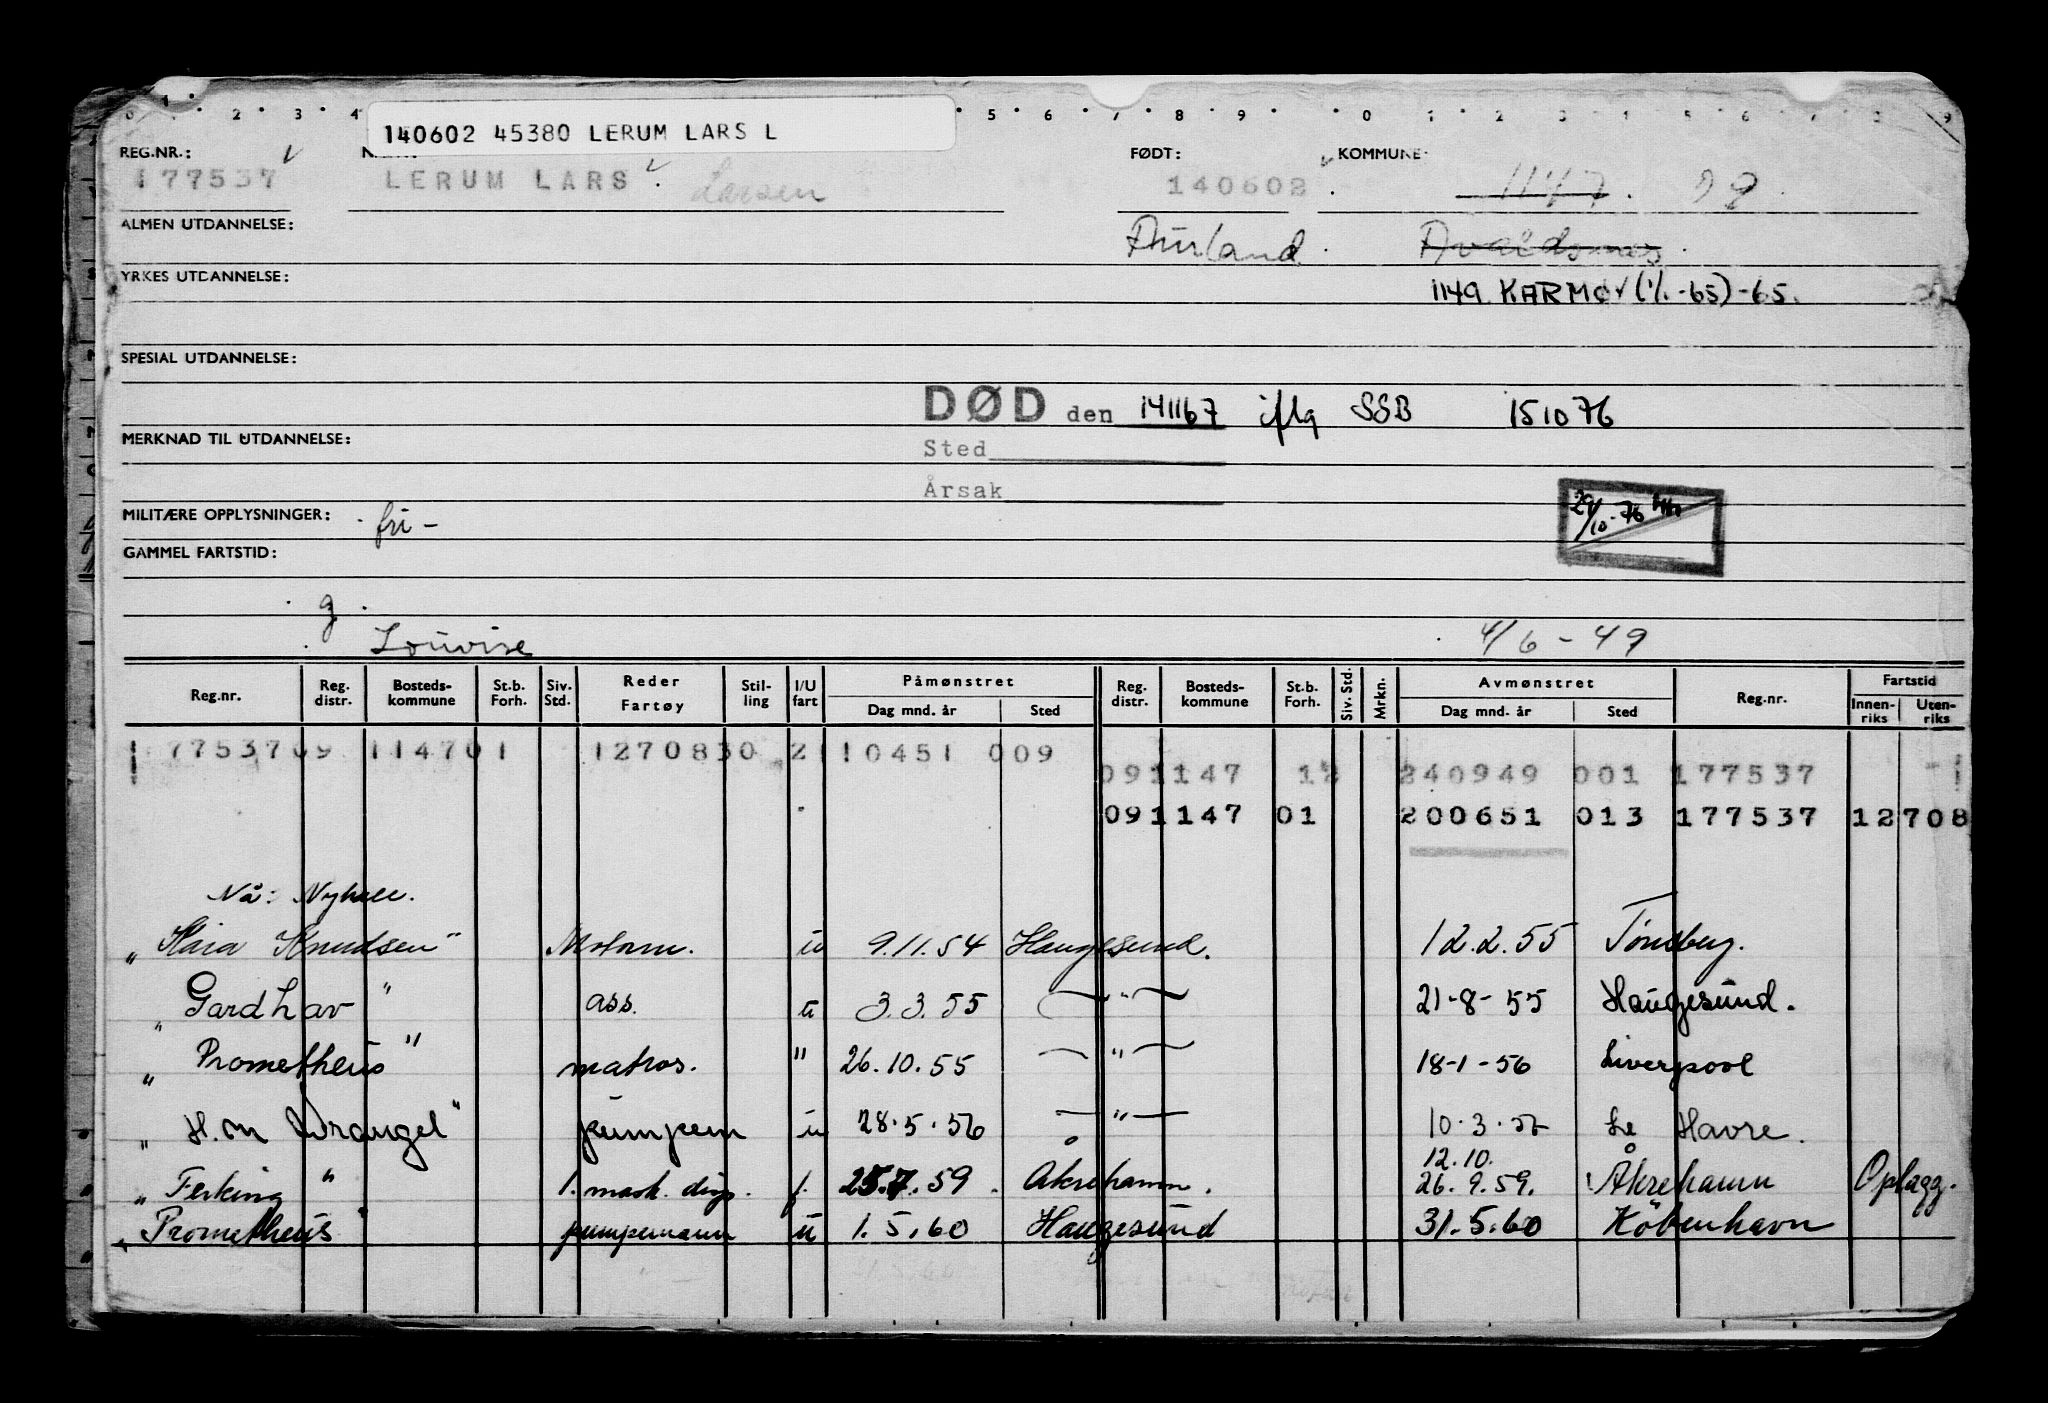 140602 45380 LERUM LARS L
REG.NR.: FØDT: KOMMUNE:
177537 LERUM LARS Larsen 140602 1147
ALMEN UTDANNELSE: Aurland Avaldsnes
YRKES UTDANNELSE: 1149 KARMØY (1/1-65)-65.
SPESIAL UTDANNELSE:
DØD den 141167 iflg SSB 151076
MERKNAD TIL UTDANNELSE:
Sted
Årsak
29/10-76
MILITÆRE OPPLYSNINGER: fri -
GAMMEL FARTSTID:
g.
Louvise 4/6-49
Reg.nr. Reg. distr. Bosteds-kommune St.b. Forh. Siv. Std. Reder Fartøy Stil-ling I/U fart Påmønstret Dag mnd. år Sted Reg. distr. Bosteds-kommune St.b. Forh. Siv. Std. Mrkn. Avmønstret Dag mnd. år Sted Reg.nr. Fartstid Innen-riks Uten-riks
17753709 114701 1270830 21 10451 009
091147 12 240949 001 177537
091147 01 200651 013 177537 12708
Nå:
"Kaia Knudsen" Motorm. u 9.11.54 Haugesund. 12.2.55 Tønsberg.
"Gardhav" ass. u 3.3.55 — " — 21-8-55 Haugesund.
"Prometheus" matros. " 26.10.55 — " — 18-1-56 Liverpool
"H.M Wrangel" pumpem u 28.5.56 — " — 10.3.57 Le Havre.
12.10.
"Ferking" 1. mask. disp. f. 25.7.59. Åkrehamn. 26.9.59. Åkrehamn Oplagg.
"Prometheus" pumpemann u 1.5.60 Haugesund 31.5.60 København